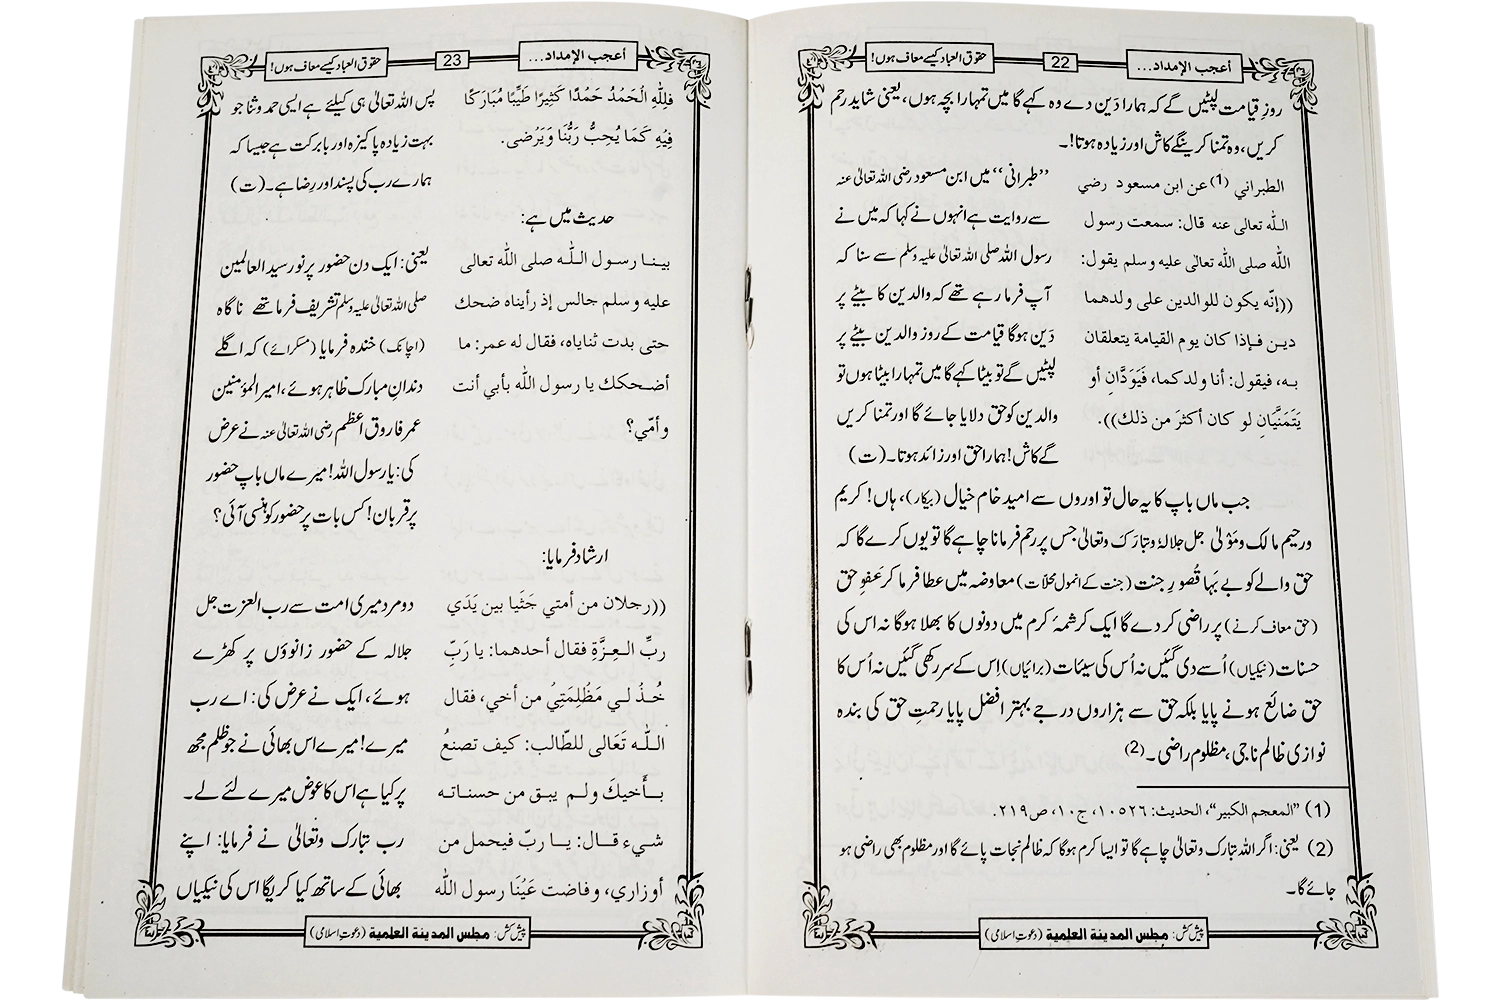 أعجب الإمداد...
22
حقوق العباد کیسے معاف ہوں!
روزِ قیامت لپٹیں گے کہ ہمارا دَین دے وہ کہے گا میں تمہارا بچہ ہوں، یعنی شاید رحم
کریں، وہ تمنا کرینگے کاش اور زیادہ ہوتا!۔
الطبراني (1) عن ابن مسعود رضي
اللّٰه تعالى عنه قال: سمعت رسول
اللّٰه صلى اللّٰه تعالى عليه وسلم يقول:
((إنّه يكون للوالدين على ولدهما
دين فإذا كان يوم القيامة يتعلقان
به، فيقول: أنا ولدكما، فَيَوَدَّانِ أو
يَتَمَنَّيَانِ لو كان أكثرَ من ذلك)).
’’طبرانی‘‘ میں ابن مسعود رضی اللہ تعالیٰ عنہ
سے روایت ہے انہوں نے کہا کہ میں نے
رسول اللہ صلی اللہ تعالیٰ علیہ وسلم سے سنا کہ
آپ فرما رہے تھے کہ والدین کا بیٹے پر
دَین ہوگا قیامت کے روز والدین بیٹے پر
لپٹیں گے تو بیٹا کہے گا میں تمہارا بیٹا ہوں تو
والدین کو حق دلایا جائے گا اور تمنا کریں
گے کاش! ہمارا حق اور زائد ہوتا۔ (ت)
جب ماں باپ کا یہ حال تو اوروں سے امید خام خیال (بیکار)، ہاں! کریم
ورحیم مالک ومَوْلیٰ جل جلالہٗ وتبارَک وتعالیٰ جس پر رحم فرمانا چاہے گا تو یوں کرے گا کہ
حق والے کو بے بَہا قُصورِ جنت (جنت کے انمول محلّات) معاوضہ میں عطا فرما کر عَفوِ حق
(حق معاف کرنے) پر راضی کر دے گا ایک کرشمۂ کرم میں دونوں کا بھلا ہوگا نہ اس کی
حسنات (نیکیاں) اُسے دی گئیں نہ اُس کی سیئات (برائیاں) اِس کے سر رکھی گئیں نہ اُس کا
حق ضائع ہونے پایا بلکہ حق سے ہزاروں درجے بہتر افضل پایا رحمتِ حق کی بندہ
نوازی ظالم ناجی، مظلوم راضی۔ (2)
(1) "المعجم الكبير"، الحديث: ١٠٥٢٦، ج١٠، ص٢١٩.
(2) یعنی: اگر اللہ تبارک وتعالیٰ چاہے گا تو ایسا کرم ہوگا کہ ظالم نجات پائے گا اور مظلوم بھی راضی ہو
جائے گا۔
پیش کش: مجلس المدينة العلمية (دعوتِ اسلامی)
أعجب الإمداد...
23
حقوق العباد کیسے معاف ہوں!
فلِلّٰهِ الْحَمْدُ حَمْدًا كَثِيْرًا طَيِّبًا مُبَارَكًا
فِيْهِ كَمَا يُحِبُّ رَبُّنَا وَيَرْضٰى.
پس اللہ تعالیٰ ہی کیلئے ہے ایسی حمد وثنا جو
بہت زیادہ پاکیزہ اور بابرکت ہے جیسا کہ
ہمارے رب کی پسند اور رِضا ہے۔ (ت)
حدیث میں ہے:
بينا رسول اللّٰه صلى اللّٰه تعالى
عليه وسلم جالس إذ رأيناه ضحك
حتى بدت ثناياه، فقال له عمر: ما
أضحكك يا رسول اللّٰه بأبي أنت
وأمّي؟
یعنی: ایک دن حضور پرنور سید العالمین
صلی اللہ تعالیٰ علیہ وسلم تشریف فرما تھے ناگاہ
(اچانک) خندہ فرمایا (مسکرائے) کہ اگلے
دندانِ مبارک ظاہر ہوئے، امیر المؤمنین
عمر فاروق اعظم رضی اللہ تعالیٰ عنہ نے عرض
کی: یا رسول اللہ! میرے ماں باپ حضور
پر قربان! کس بات پر حضور کو ہنسی آئی؟
ارشاد فرمایا:
((رجلان من أمتي جَثَيا بين يَدَي
ربِّ العِزَّةِ فقال أحدهما: يا رَبِّ
خُذْ لي مَظْلِمَتِيْ من أخي، فقال
اللّٰه تَعَالى للطّالب: كيف تصنعُ
بأخيكَ ولم يبق من حسناته
شيء قال: يا ربّ فيحمل من
أوزاري، وفاضت عَيْنَا رسول اللّٰه
دو مرد میری امت سے رب العزت جل
جلالہ کے حضور زانوؤں پر کھڑے
ہوئے، ایک نے عرض کی: اے رب
میرے! میرے اس بھائی نے جو ظلم مجھ
پر کیا ہے اس کا عوض میرے لئے لے۔
رب تبارک وتعالیٰ نے فرمایا: اپنے
بھائی کے ساتھ کیا کریگا اس کی نیکیاں
پیش کش: مجلس المدينة العلمية (دعوتِ اسلامی)